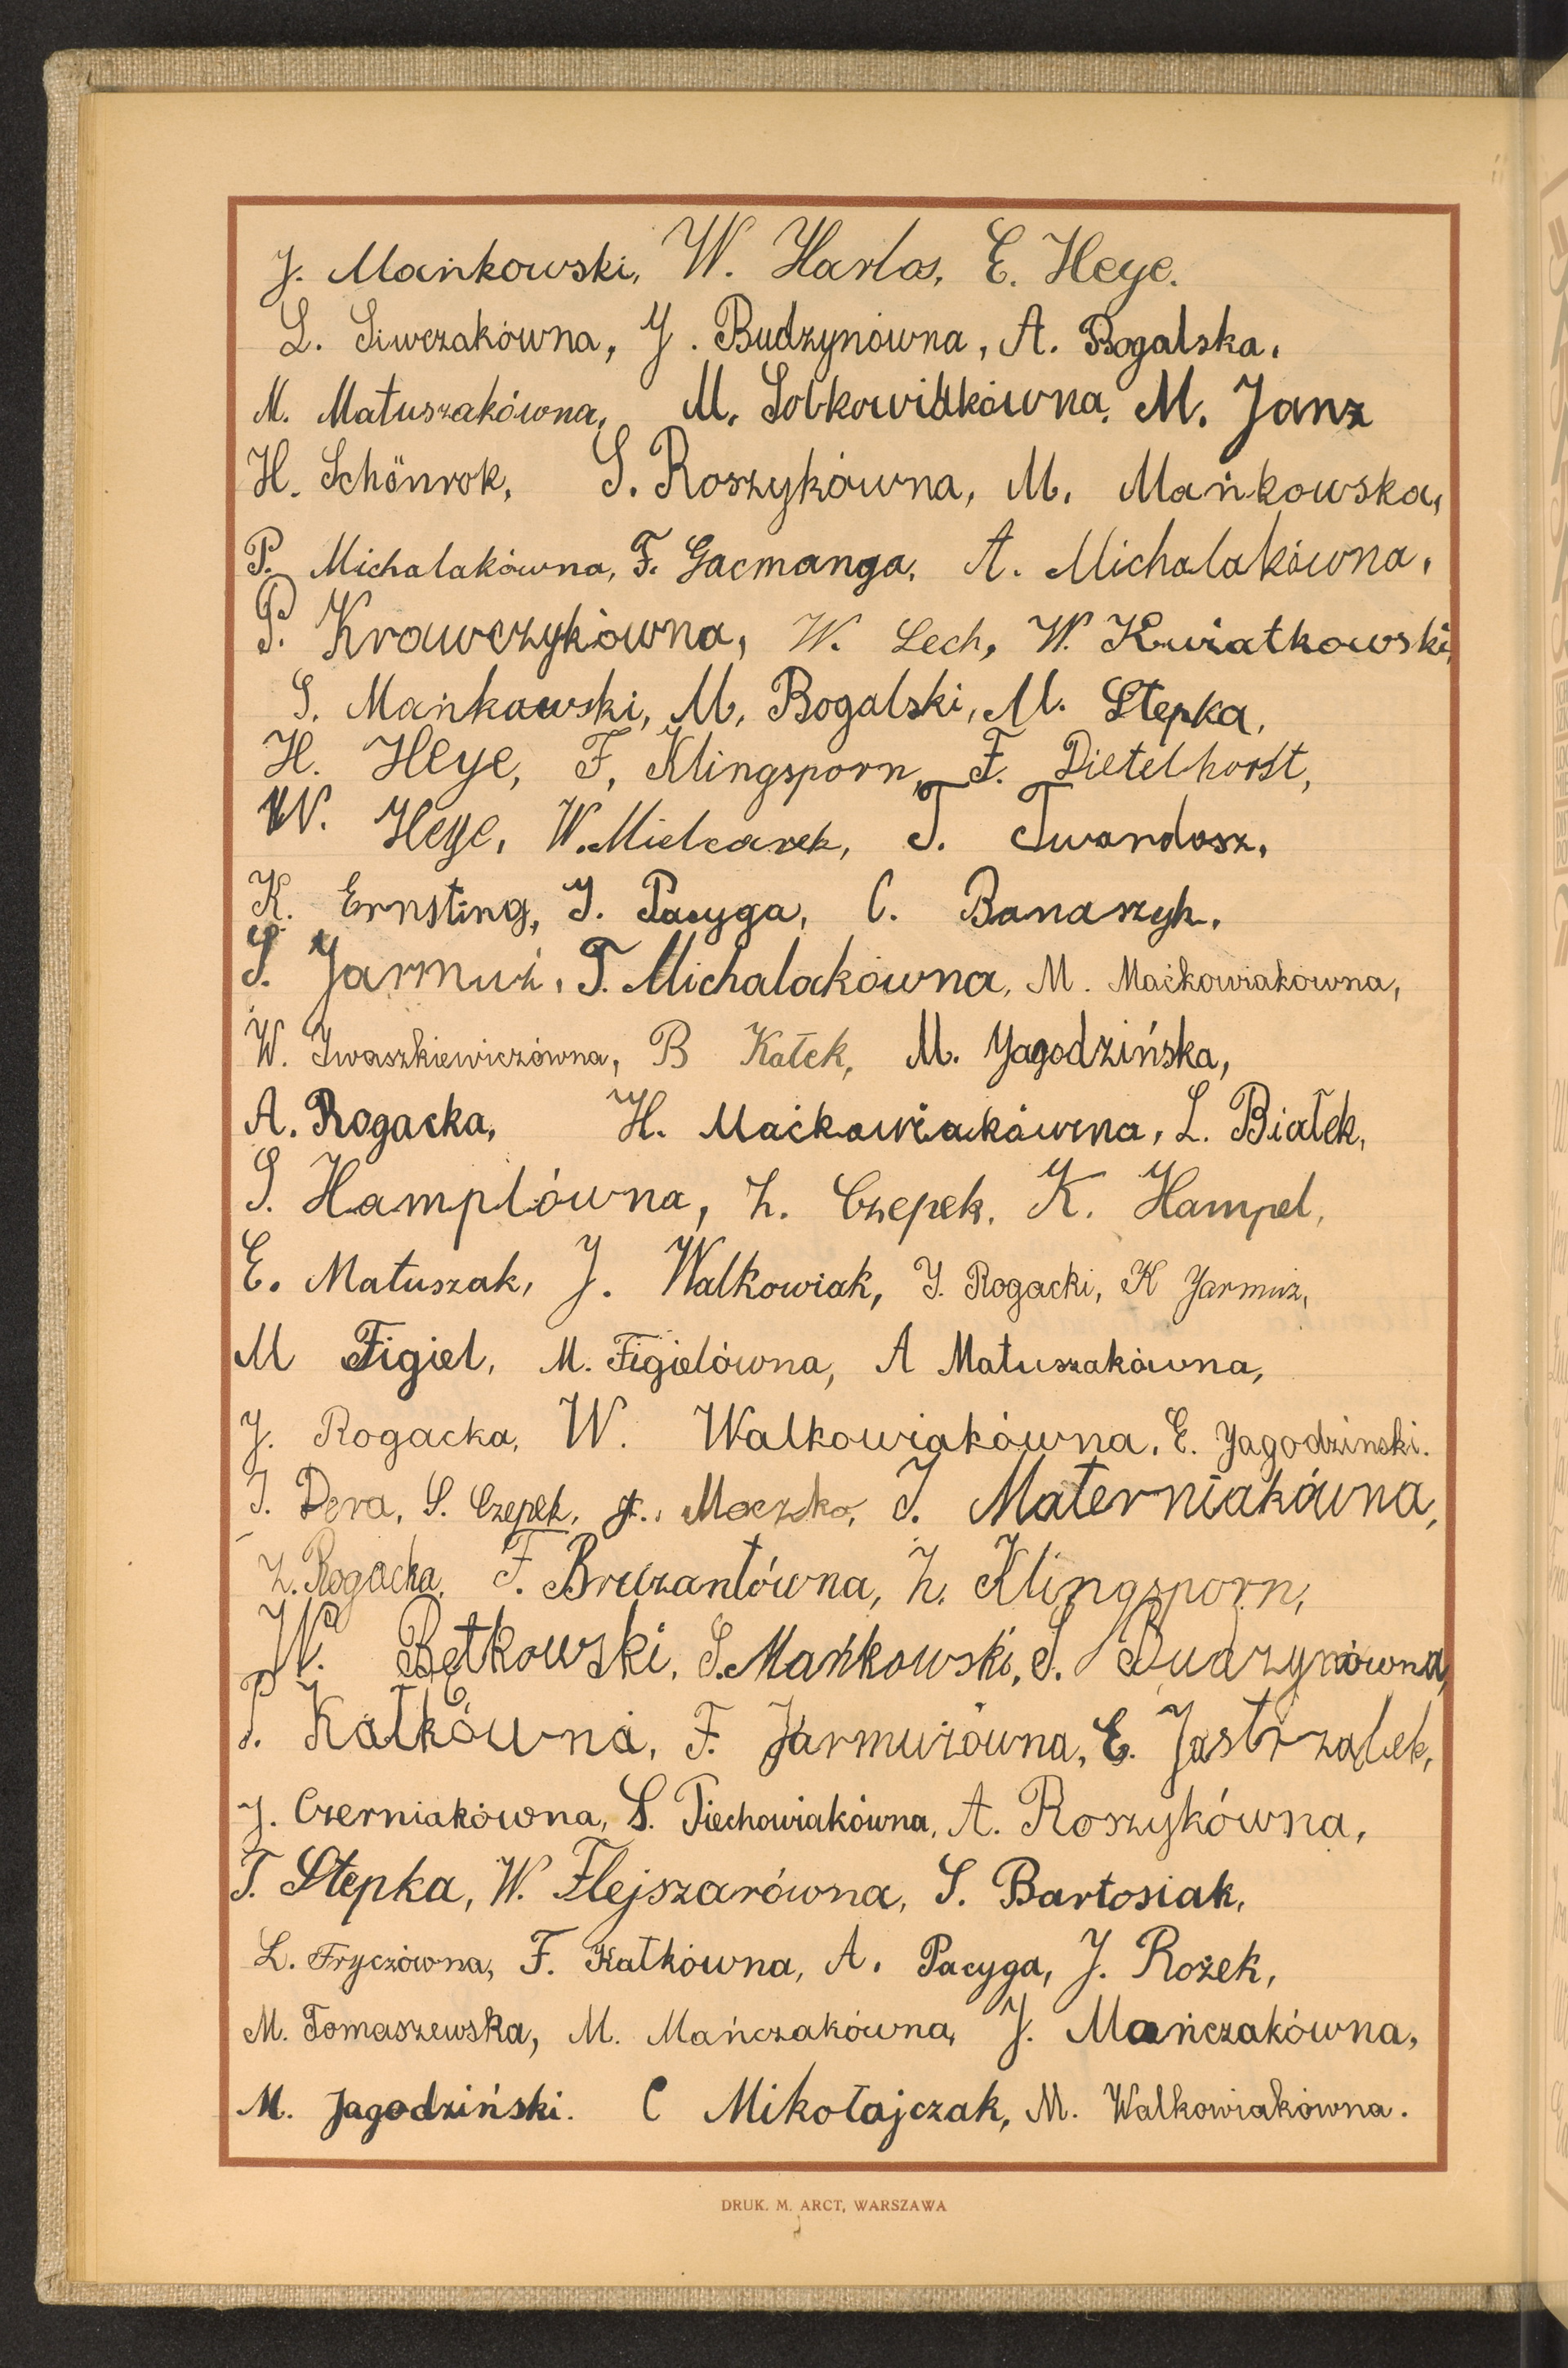 J. Mańkowski, W. Harlos, E. Heye.
L. Siwczakówna, J. Budzynówna, A. Bogalska.
M. Matuszakówna, M. M. Janz
H. Schönrok, S. Roszykówna, M. Mańkowska,
P. Michalakówna, F. Gacmanga, A. Michalakówna,
P. Krawczykówna, W. Lech, W. Kwiatkowski,
S. Mańkowski, M. Bogalski, M. Stepka,
H. Heye, F. Klingsporn, F. Dietelhorst,
W. Heye, W. Mielcarek, T. Twardosz,
K. Ernsting, J. Pacyga, C. Banaszyk,
S. Jarmuż, T. Michalakówna, M. Maćkowiakówna,
W. Iwaszkiewiczówna, B Kałek, M. Jagodzińska,
A. Rogacka, H. Maćkowiakówna, L. Białek,
S. Hamplówna, Z. Czepek, K. Hampel,
E. Matuszak, J. Walkowiak, J. Rogacki, K Jarmuż,
M Figiel, M. Figielówna, A Matuszakówna,
J. Rogacka, W. Walkowiakówna, E. Jagodzinski.
J. Dera, S. Czepek, J. Moczko, J. Materniakówna,
Z. Rogacka, F. Bruzantówna, Z. Klingsporn,
W. Bętkowski, S. Mańkowski, S. Budzynówna,
P. Kałkówna, F. Jarmużówna, E. Jastrząbek,
J. Czerniakówna, S. Piechowiakówna, A. Roszykówna,
T. Stepka, W. Flejszarówna, S. Bartosiak,
L. Fryczówna, F. Kałkówna, A. Pacyga, J. Rożek,
M. Tomaszewska, M. Mańczakówna, J. Mańczakówna,
M. Jagodziński. C Mikołajczak, M. Walkowiakówna.
DRUK. M. ARCT, WARSZAWA